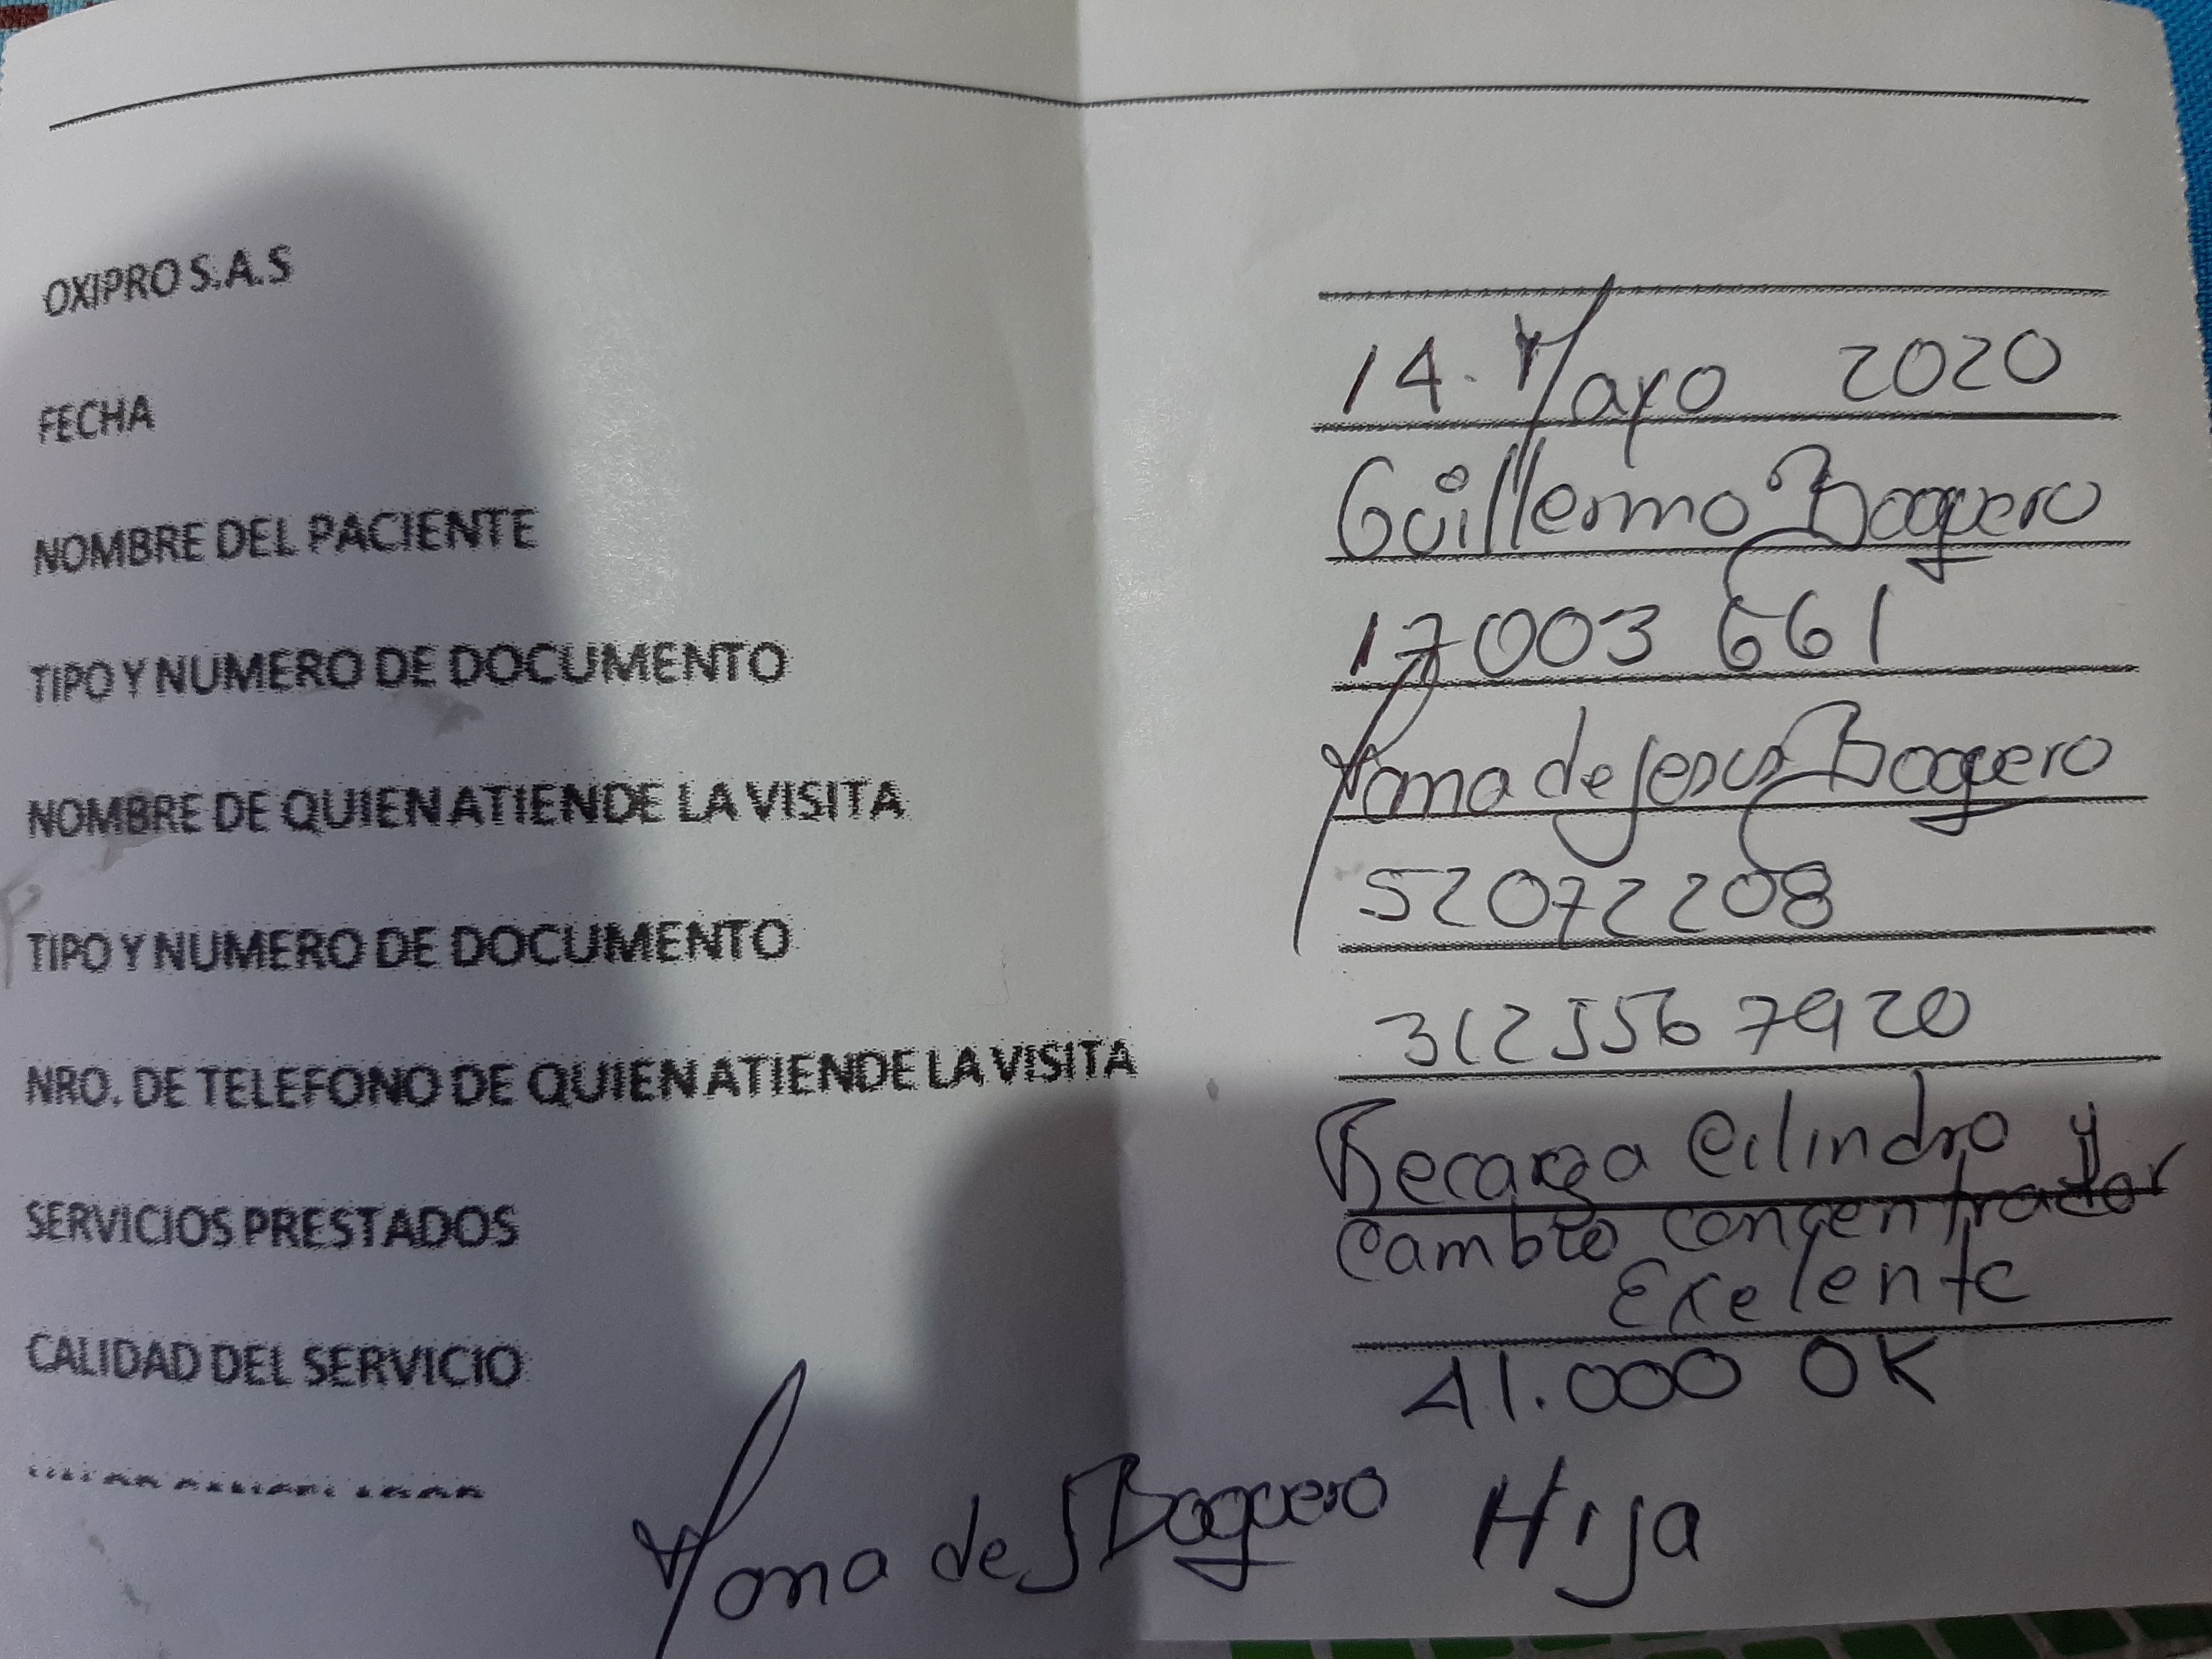 OXIPRO S.A.S
FECHA 14. Mayo 2020
NOMBRE DEL PACIENTE Guillermo Baquero
TIPO Y NUMERO DE DOCUMENTO 17003 661
NOMBRE DE QUIEN ATIENDE LA VISITA de Jesus Baquero
TIPO Y NUMERO DE DOCUMENTO 52072208
NRO. DE TELEFONO DE QUIEN ATIENDE LA VISITA 3125567920
SERVICIOS PRESTADOS Recarga Cilindro y
Cambio concentrador
CALIDAD DEL SERVICIO Exelente
41.000 OK
de J Baquero Hija